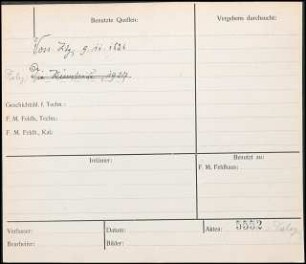 Benutzte Quellen:
Vergebens durchsucht:
Voss. Ztg. 9. 11. 1926
1927
Geschichtsbl. f. Techn.:
F. M. Feldh., Techn.:
F. M. Feldh., Kal:
Irrtümer:
Benutzt zu:
F. M. Feldhaus:
Verfasser:
Datum:
Akten: 5552
Bearbeiter:
Bilder: